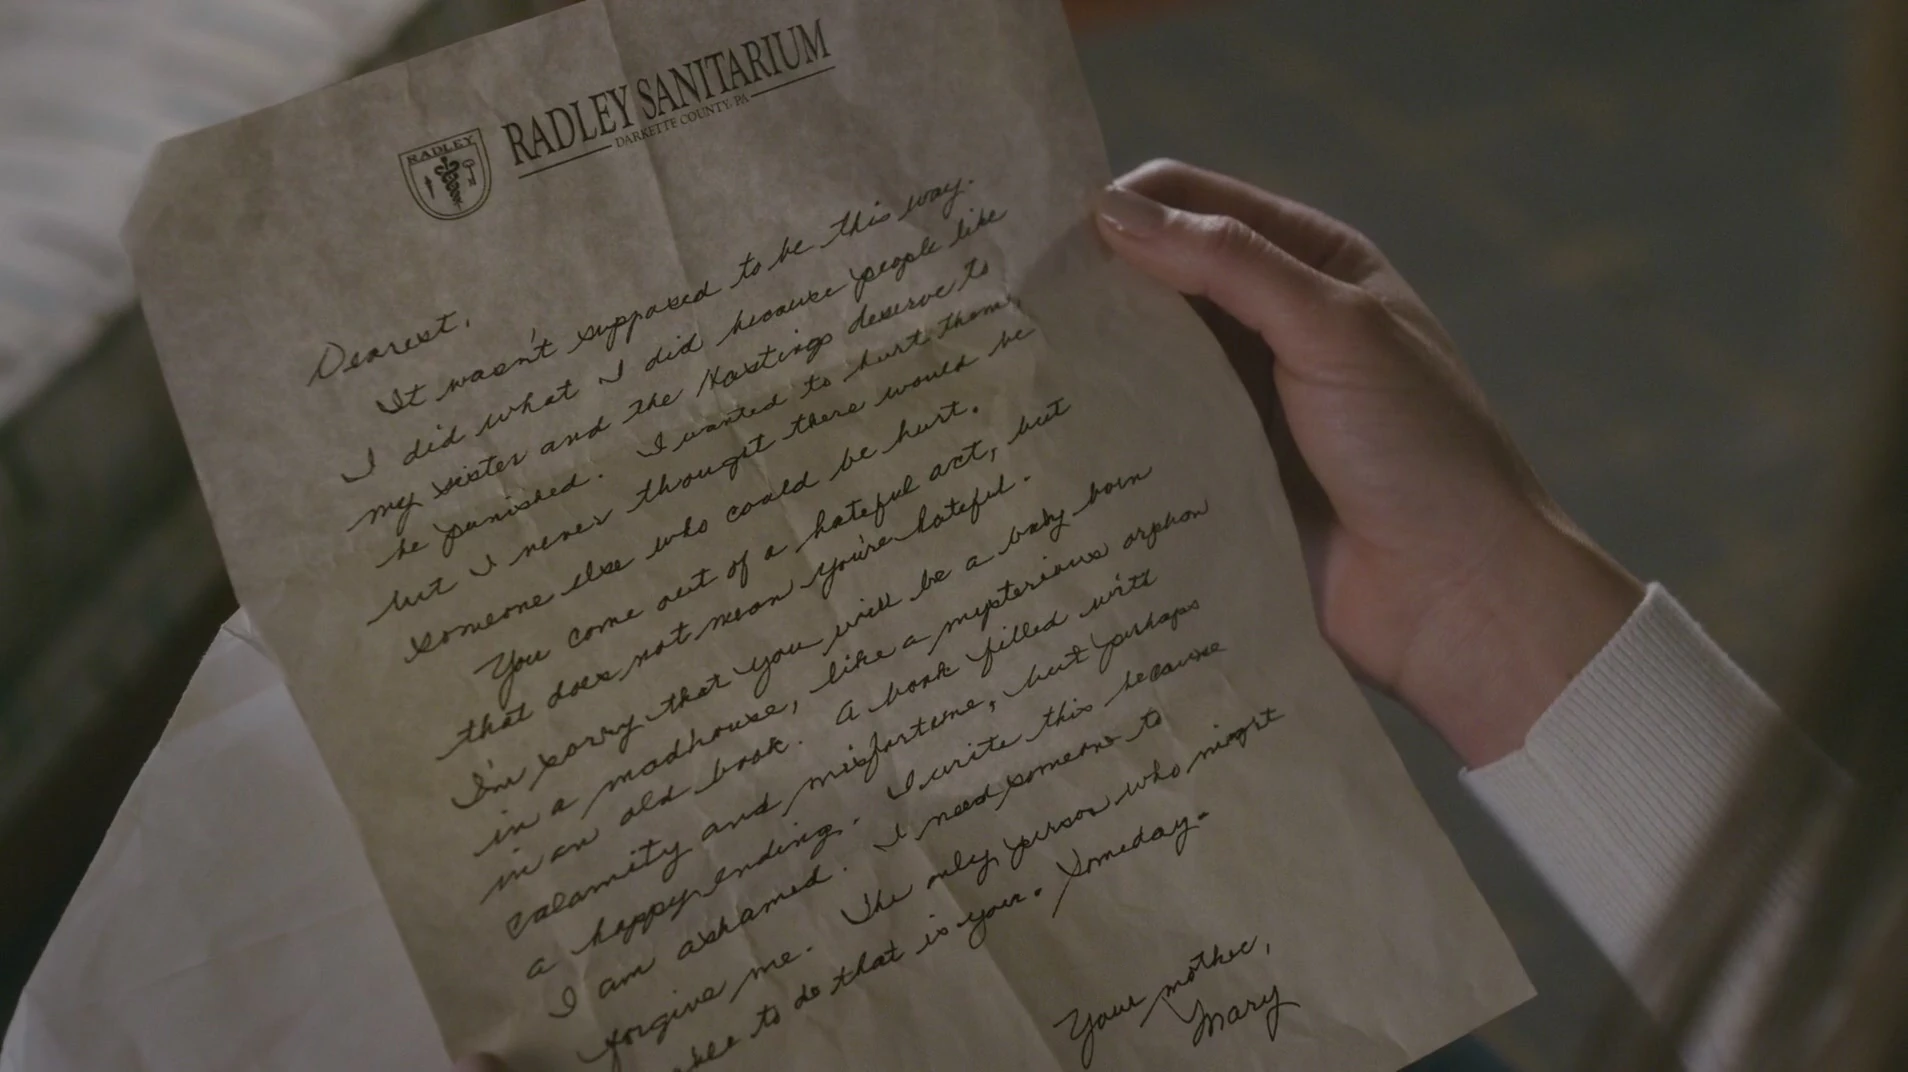 RADLEY
RADLEY SANITARIUM
DARKETTE COUNTY, PA
Dearest,
It wasn't supposed to be this way.
I did what I did because people like
my sister and the Hastings deserve to
be punished. I wanted to hurt them,
but I never thought there would be
someone else who could be hurt.
You come out of a hateful act, but
that does not mean you're hateful.
I'm sorry that you will be a baby born
in a madhouse, like a mysterious orphan
in an old book. A book filled with
calamity and misfortune, but perhaps
a happy ending. I write this because
I am ashamed. I need someone to
forgive me. The only person who might
able to do that is you. Someday.
Your mother,
Mary